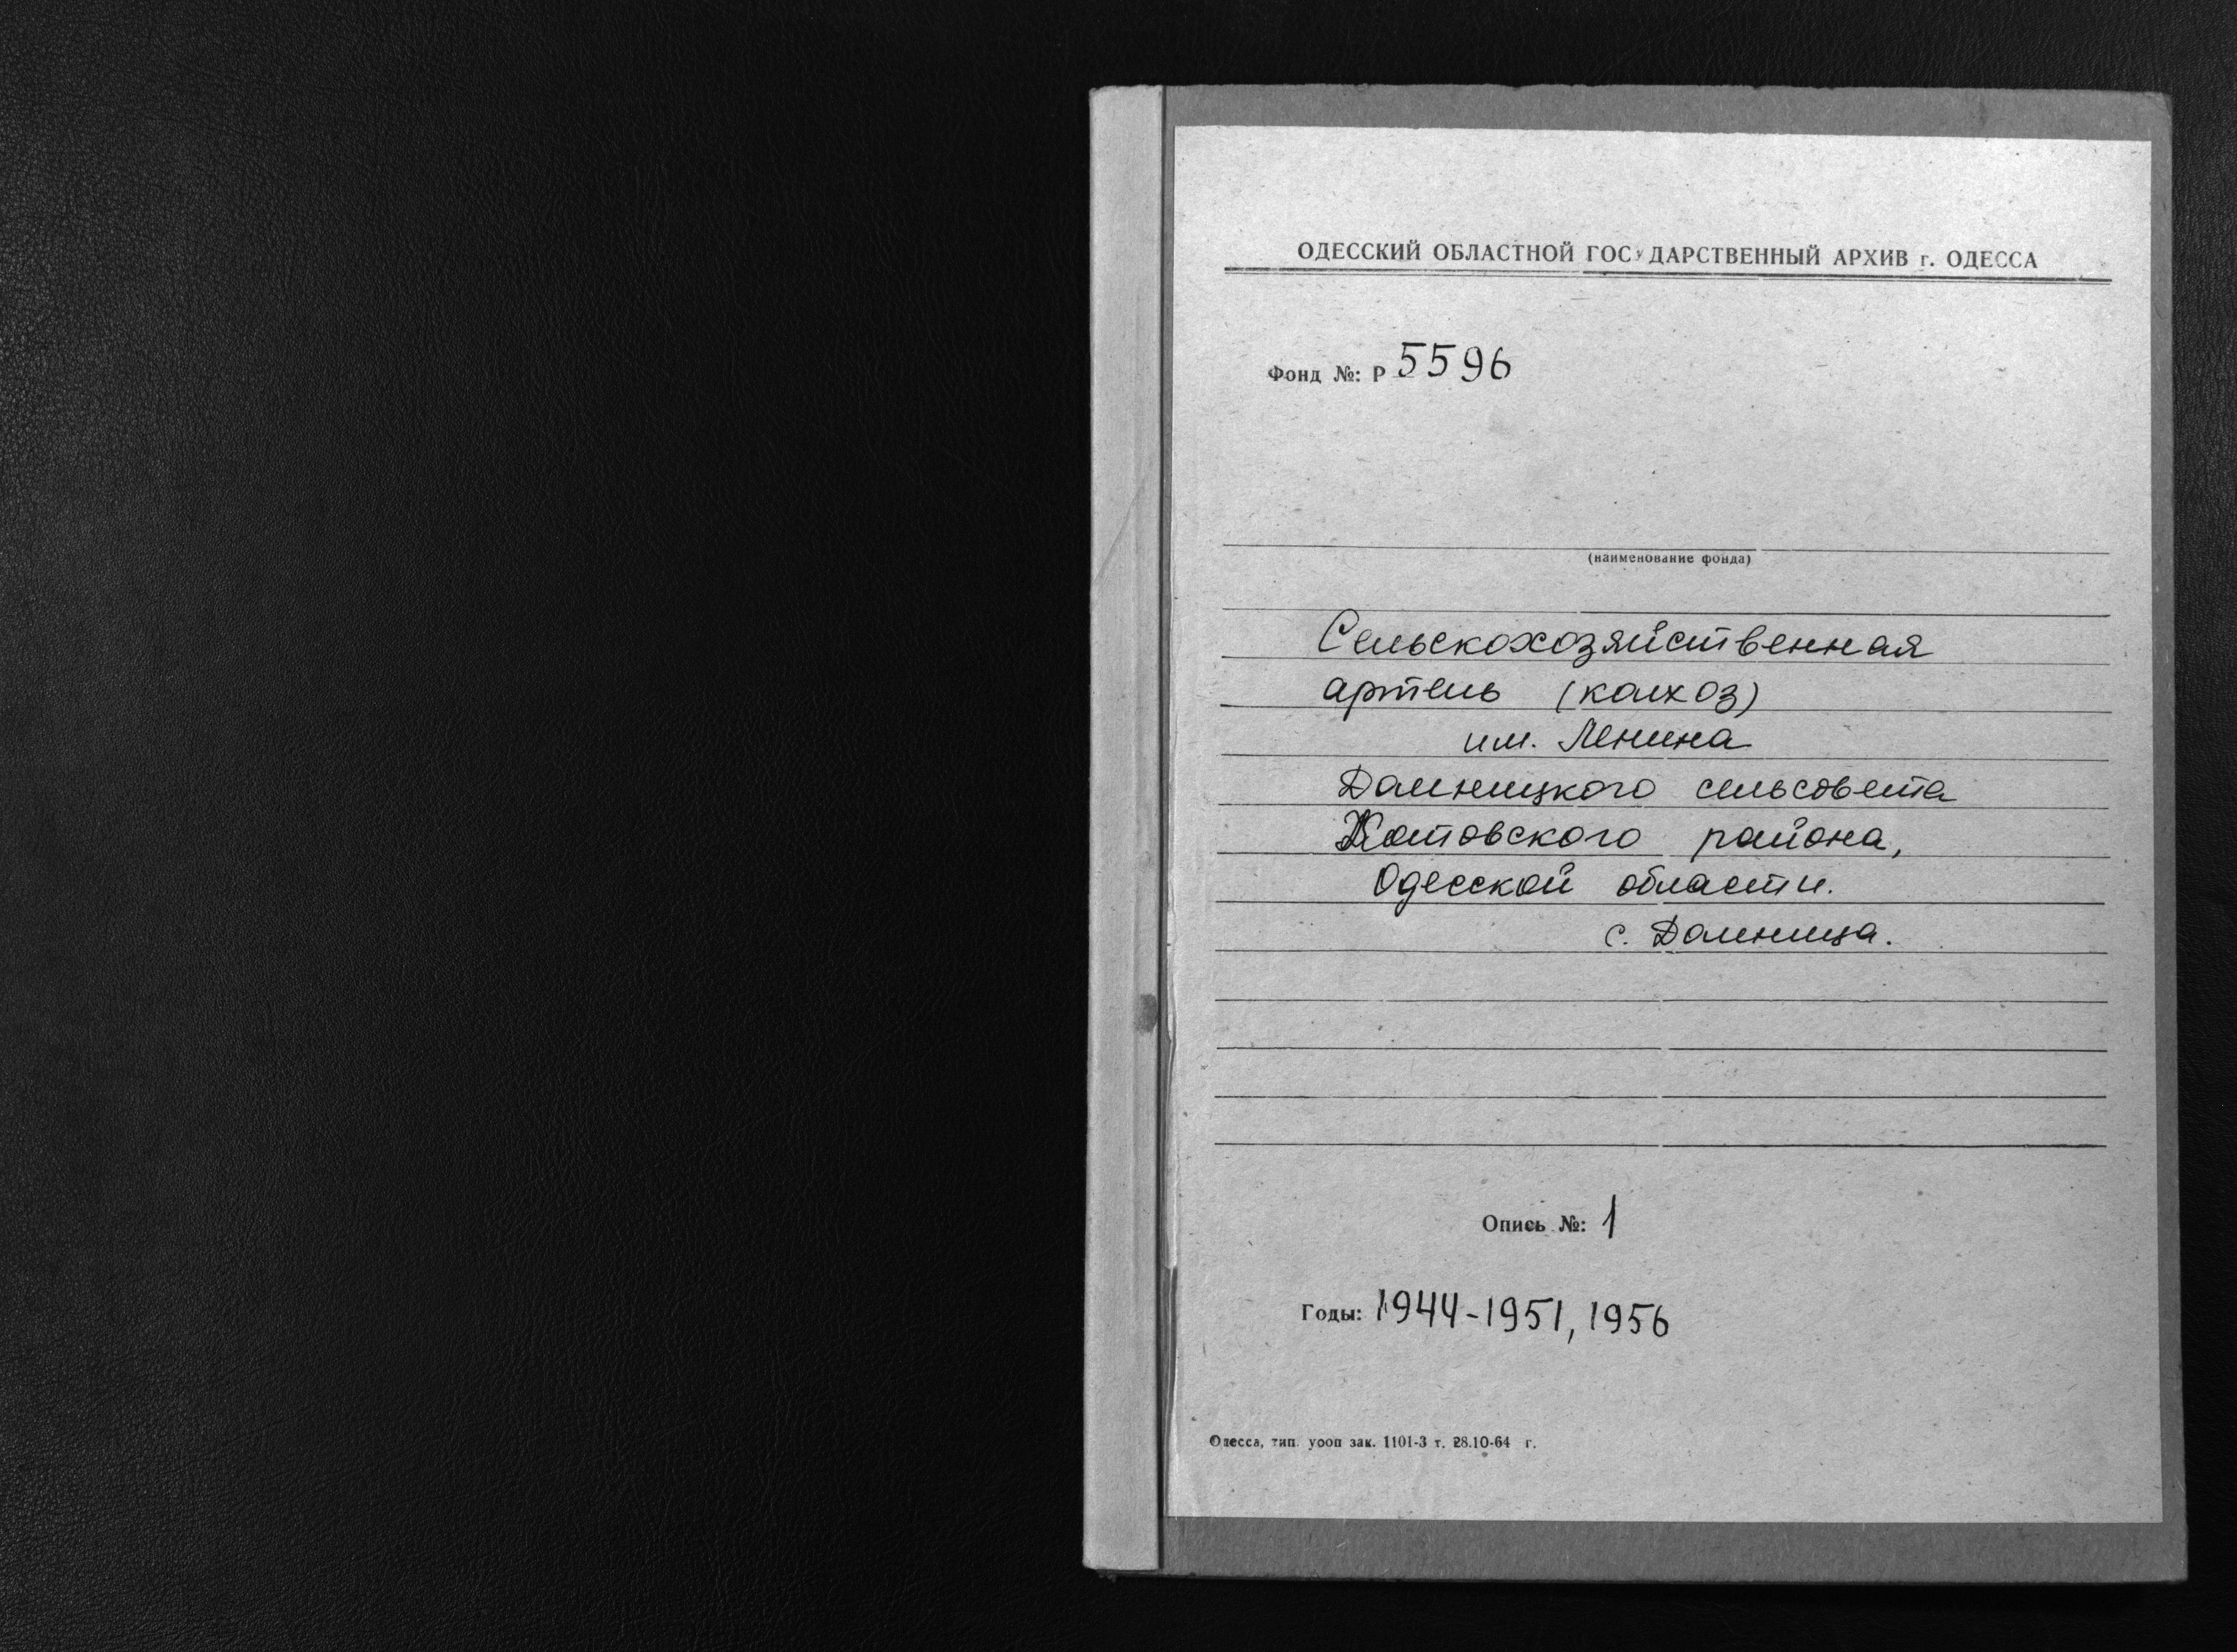 ОДЕССКИЙ ОБЛАСТНОЙ ГОСУДАРСТВЕННЫЙ АРХИВ г. ОДЕССА
Фонд №: Р 5596
(наименование фонда)
Сельскохозяйственная
артель (колхоз)
им. Ленина
Домницкого сельсовета
Котовского района,
Одесской области.
с. Домница.
Опись №: 1
Годы: 1944-1951, 1956
Одесса, тип. уооп зак. 1101-3 т. 28.10-64 г.